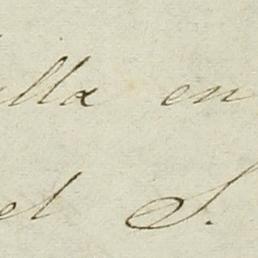 illa en
el S.